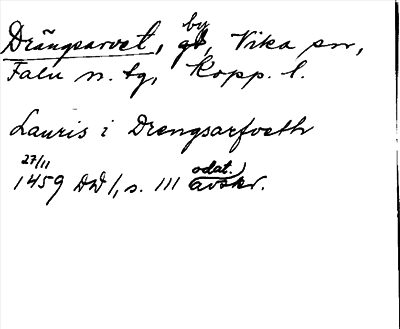 Drängsarvet, by, Vika sn,
Falu n. tg, Kopp. l.
Lauris i Drengsarfveth
27/11
1459 DD 1, s. 111 odat. avskr.